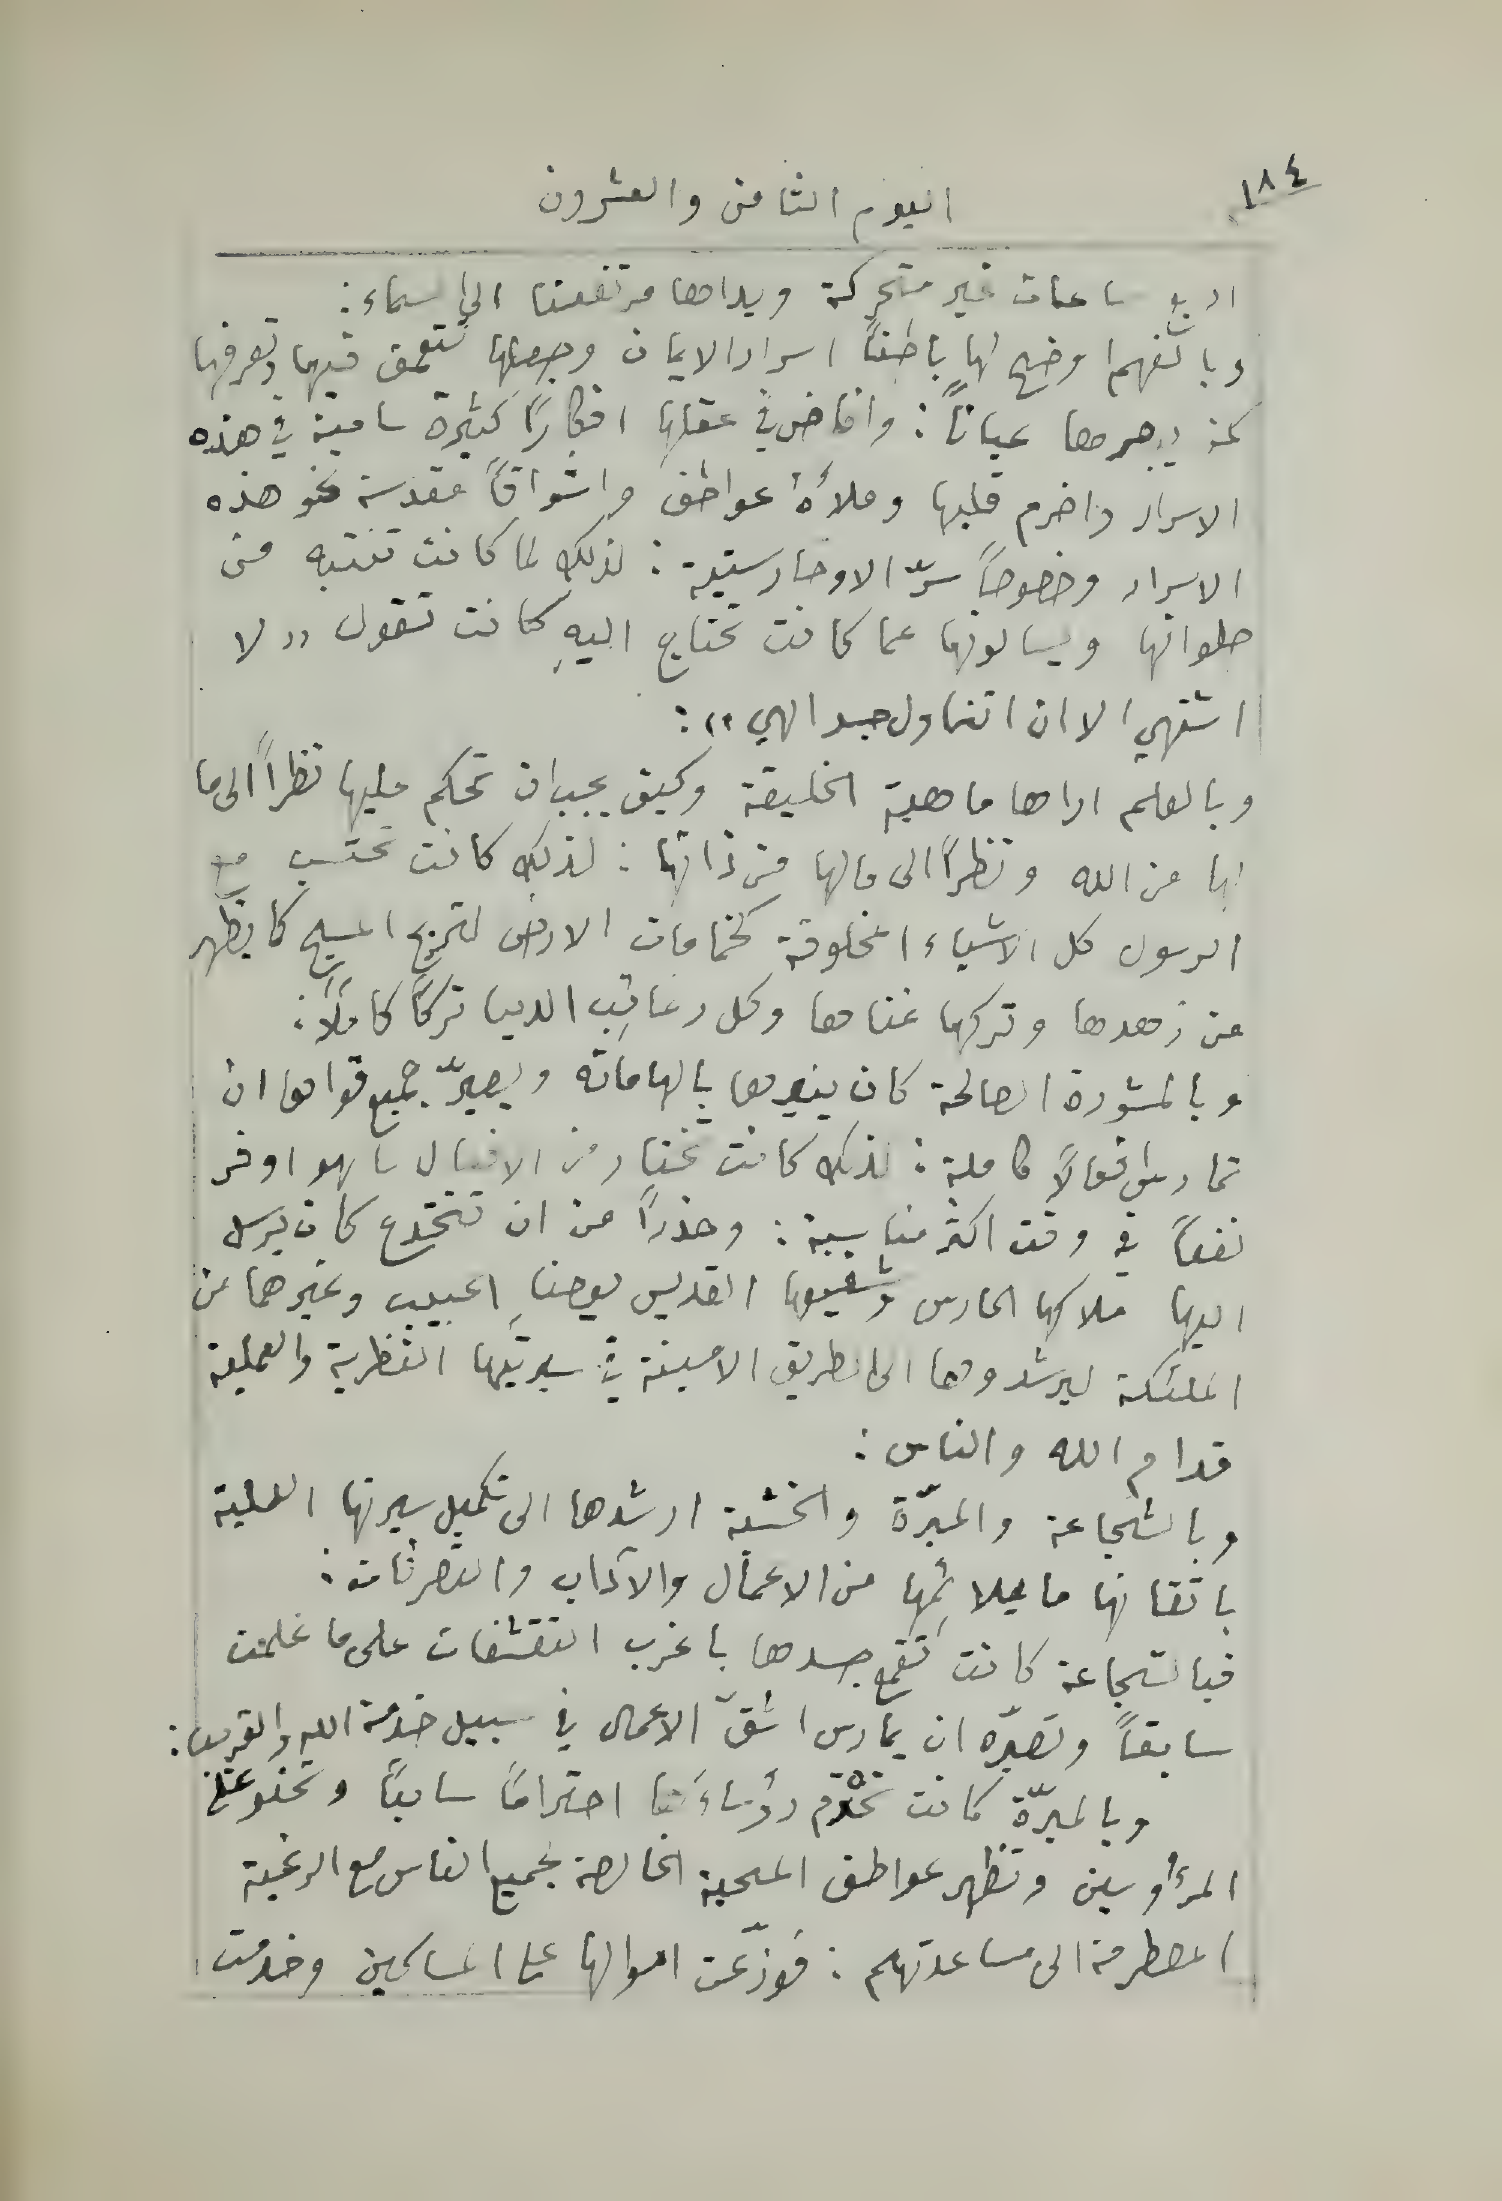 ١٨٤
اليوم الثامن والعشرون
اربع ساعات غير متحركة ويداها مرتفعتا الى السماء :
وبالفهم اوضح لها باطناً اسرار الايمان وجعلها تتعمق فيها وتعرفها
كمن يبصرها عياناً : وافاض في عقلها افكاراً كثيرة سامية في هذه
الاسرار واضرم قلبها وملأهُ عواطف واشواقاً مقدسة نحو هذه
الاسرار وخصوصاً سرّ الاوخارستية : لذلك لما كانت تنتبه من
صلواتها ويسالونها عما كانت تحتاج اليهِ كانت تقول " لا
اشتهي الا ان اتناول جسد الهي " :
وبالعلم اراها ماهية الخليقة وكيف يجب ان تحكم عليها نظراً الى ما
لها من الله ونظراً الى ما لها من ذاتها : لذلك كانت تحتسب مع
الرسول كل الاشياء المخلوقة كخمامات الارض لتربح المسيح كما يظهر
من زهدها وتركها غناها وكل رغائب الدنيا تركاً كاملاً :
وبالمشورة الصالحة كان ينيرها بالهاماته ويصيّر جميع قواها ان
تمارس افعالاً كاملة : لذلك كانت تختار من الافعال ما هو اوفر
نفعاً في وقت اكثر مناسبة : وحذراً من ان تنخدع كان يرسل
اليها ملاكها الحارس وشفيعها القديس يوحنا الحبيب وغيرهما من
الملئكة ليرشدوها الى الطريق الامينة في سيرتيها النظرية والعملية
قدام الله والناس :
وبالشجاعة والمبرّة والخشية ارشدها الى تكميل سيرتها العملية
باتقانها ما يلائمها من الاعمال والآداب والتصرفات :
فبالشجاعة كانت تقمع جسدها باغرب التقشفات على ما علمت
سابقاً وتصيّره ان يمارس اشقّ الاعمال في سبيل خدمة الله والقريب :
وبالمبرّة كانت تحترم رؤساءَها احتراماً سامياً وتحنو على
المرؤوسين وتظهر عواطف المحبة الخالصة لجميع الناس مع الرغبة
المضطرمة الى مساعدتهم : فوزّعت اموالها على المساكين وخدمت